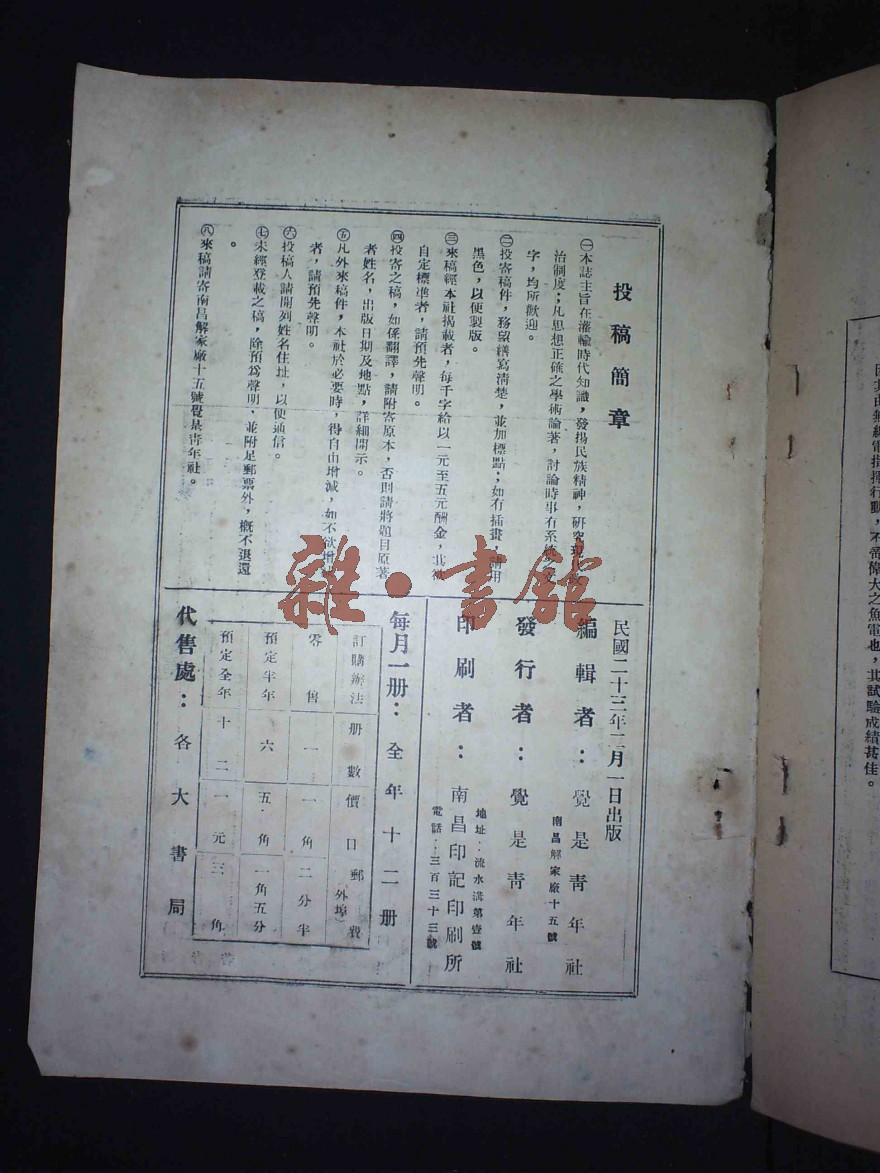 投稿簡章
㊀本誌主旨在灌輸時代知識，發揚民族精神，研究現
治制度；凡思想正確之學術論著，討論時事有系統之文
字，均所歡迎。
㊁投寄稿件，務望繕寫清楚，並加標點；如有插畫，請用
黑色，以便製版。
㊂來稿經本社揭載者，每千字給以一元至五元酬金，其欲
自定標準者，請預先聲明。
㊃投寄之稿，如係翻譯，請附寄原本，否則請將題目原著
者姓名，出版日期及地點，詳細開示。
㊄凡外來稿件，本社於必要時，得自由增減，如不欲增
者，請預先聲明。
㊅投稿人請開列姓名住址，以便通信。
㊆未經登載之稿，除預爲聲明，並附足郵票外，概不退還
。
㊇來稿請寄南昌解家廠十五號覺是青年社。
民國二十三年二月一日出版
編輯者：覺是青年社
南昌解家廠十五號
發行者：覺是青年社
印刷者：南昌印記印刷所
地址：流水溝第壹號
電話：三百三十三號
每月一册：全年十二册
訂購辦法 册數 價目 郵費（外埠）
零售 一 一角 二分半
預定半年 六 五角 一角五分
預定全年 十二 一元 三角
代售處：各大書局
雜·書館
因其由無線電指揮行動，不啻偉大之魚電也，其試驗成績甚佳。